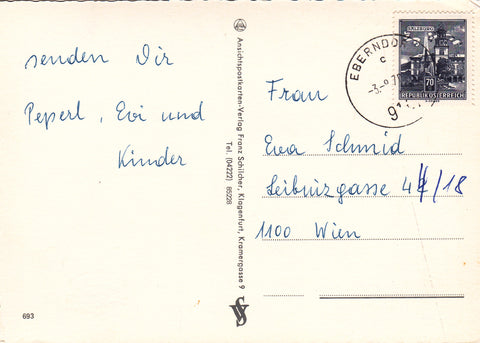 senden Dir
Peperl, Evi und
Kinder
693
Ansichtspostkarten-Verlag Franz Schilcher, Klagenfurt, Kramergasse 9
Tel. (04222) 85228
SALZBURG
70
REPUBLIK ÖSTERREICH
EBERNDORF
c
Frau
Eva Schmid
Leibnizgasse 4/18
1100 Wien